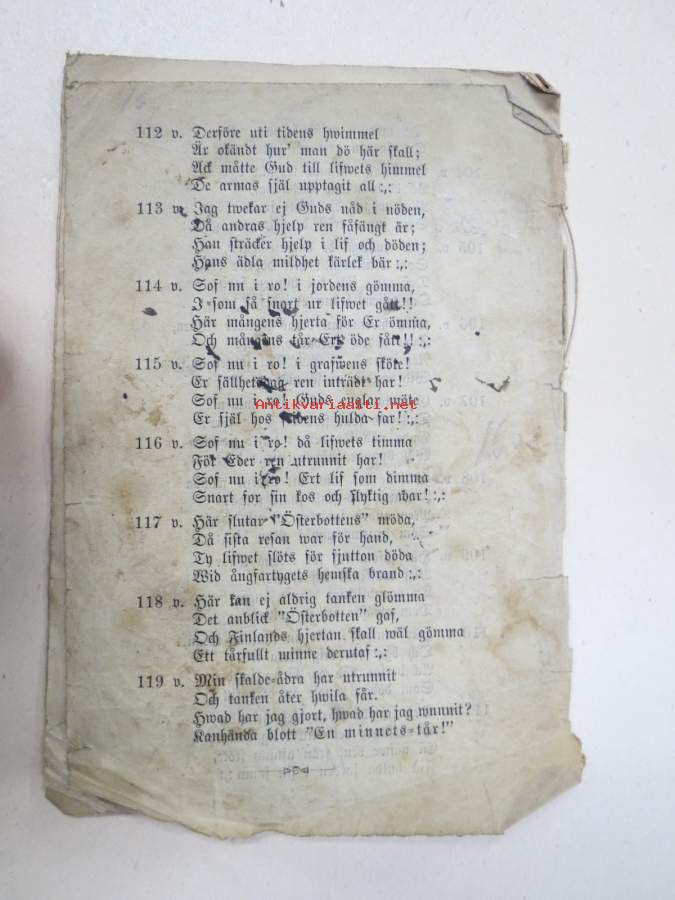 112 v. Derföre uti tidens hwimmel
Är okändt hur' man dö här skall;
Ack måtte Gud till lifwets himmel
De armas själ upptagit all :,:
113 v. Jag twekar ej Guds nåd i nöden,
Då andras hjelp ren fåfängt är;
Han sträcker hjelp i lif och döden;
Hans ädla mildhet kärlek bär :,:
114 v. Sof nu i ro! i jordens gömma,
I som så snart ur lifwet gått!!
Här mångens hjerta för Er ömma,
Och mångens tår Ert öde fått!! :,:
115 v. Sof nu i ro! i grafwens sköte!
Er sällhetsdag ren inträdt har!
Sof nu i ro! Guds englar möte
Er själ hos fridens hulda far! :,:
Antikvariaatti.net
116 v. Sof nu i ro! då lifwets timma
För Eder ren utrunnit har!
Sof nu i ro! Ert lif som dimma
Snart for sin kos och flyktig war! :,:
117 v. Här slutar "Österbottens" möda,
Då sista resan war för hand,
Ty lifwet slöts för sjutton döda
Wid ångfartygets hemska brand :,:
118 v. Här kan ej aldrig tanken glömma
Det anblick "Österbotten" gaf,
Och Finlands hjertan skall wäl gömma
Ett tårfullt minne deraf :,:
119 v. Min skalde-ådra har utrunnit
Och tanken åter hwila får.
Hwad har jag gjort, hwad har jag wunnit?
Kanhända blott "En minnets-tår!"